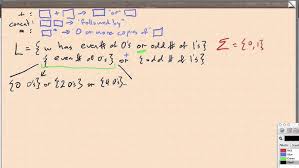 + : □ + □ → □ "or" □
concat: □ □ "followed by"
* : □* → 0 or more copies of □
L = { w has even # of 0's or odd # of 1's } Σ = {0,1}
{ even # of 0's } or { odd # of 1's }
{0 0's} or {2 0's} or {4 0's}